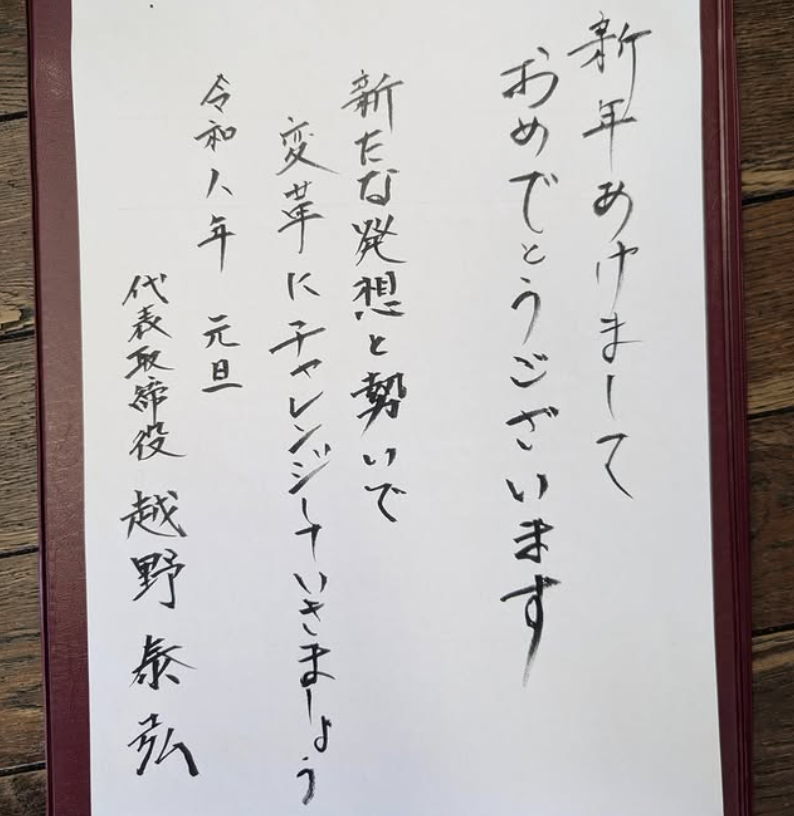 新年あけまして
おめでとうございます
新たな発想と勢いで
変革にチャレンジしていきましょう
令和八年 元旦
代表取締役 越野泰弘